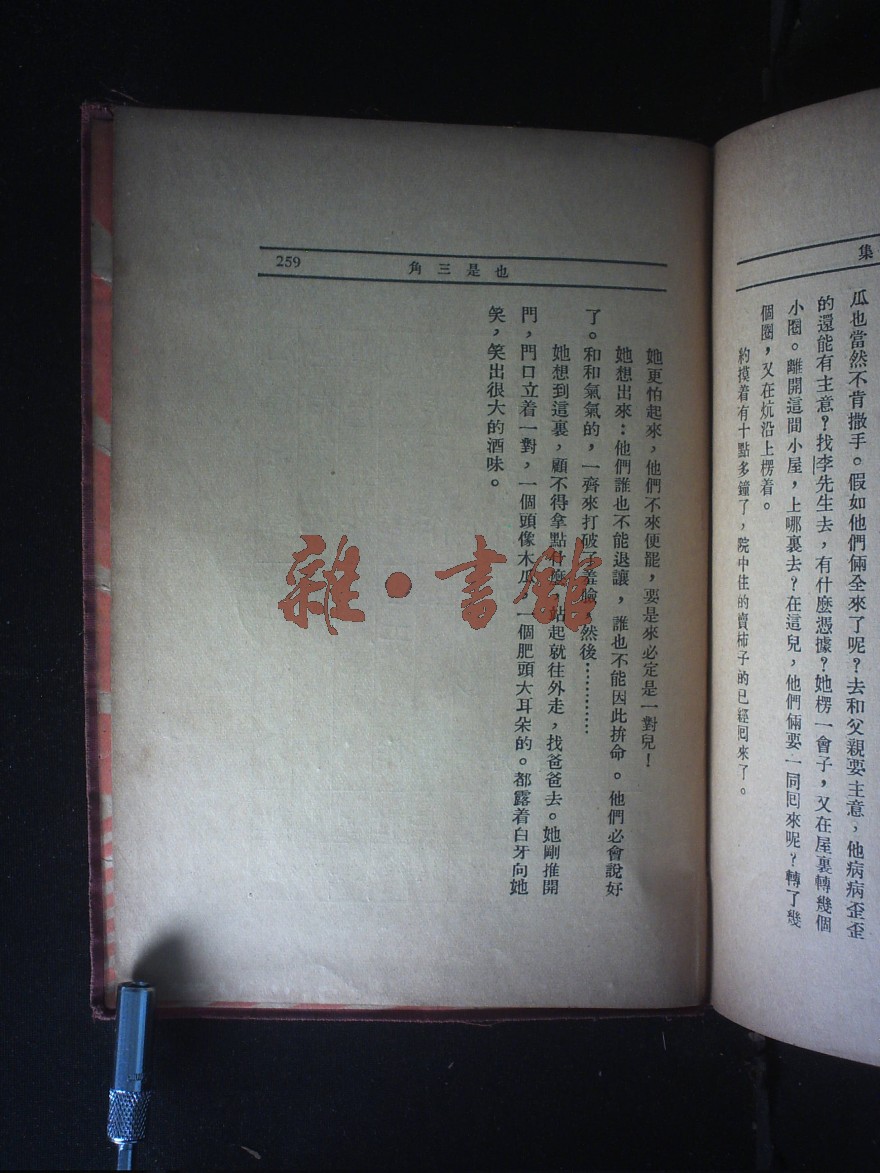 集
瓜也當然不肯撒手。假如他們倆全來了呢？去和父親要主意，他病病歪歪
的還能有主意？找李先生去，有什麽憑據？她楞一會子，又在屋裏轉幾個
小圈。離開這間小屋，上哪裏去？在這兒，他們倆要一同囘來呢？轉了幾
個圈，又在炕沿上楞着。
約摸着有十點多鐘了，院中住的賣柿子的已經囘來了。
也是三角
259
她更怕起來，他們不來便罷，要是來必定是一對兒！
她想出來：他們誰也不能退讓，誰也不能因此拚命。他們必會說好
了。和和氣氣的，一齊來打破了羞臉，然後…………
她想到這裏，顧不得拿點什麽，站起就往外走，找爸爸去。她剛推開
門，門口立着一對，一個頭像木瓜，一個肥頭大耳朵的。都露着白牙向她
笑，笑出很大的酒味。
雜·書館